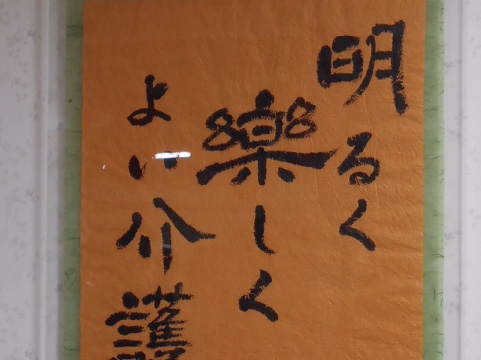 明るく
樂しく
よい介護